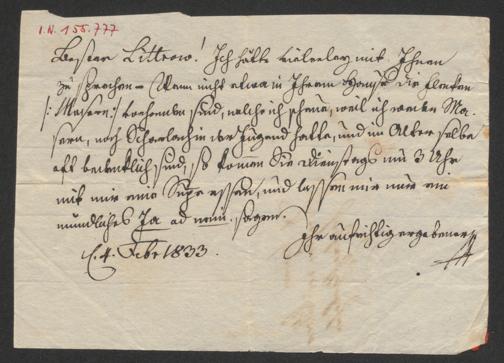 I.N. 155.777
Bester Littrow! Ich hätte vielerley mit Ihnen
zu sprechen – Wenn nicht etwa in Ihrem Hause die Flecken
/: Masern :/ vorhanden sind, welche ich scheue, weil ich weder Ma-
sern, noch Scharlach in der Jugend hatte, und im Alter selbe
oft bedenklich sind, so komen Sie Dienstags um 3 Uhr
mit mir eine Supe essen, und lassen mir nur ein
mündliches Ja od nein sagen.
Ihr aufrichtig ergebener
4. Febr 1833.